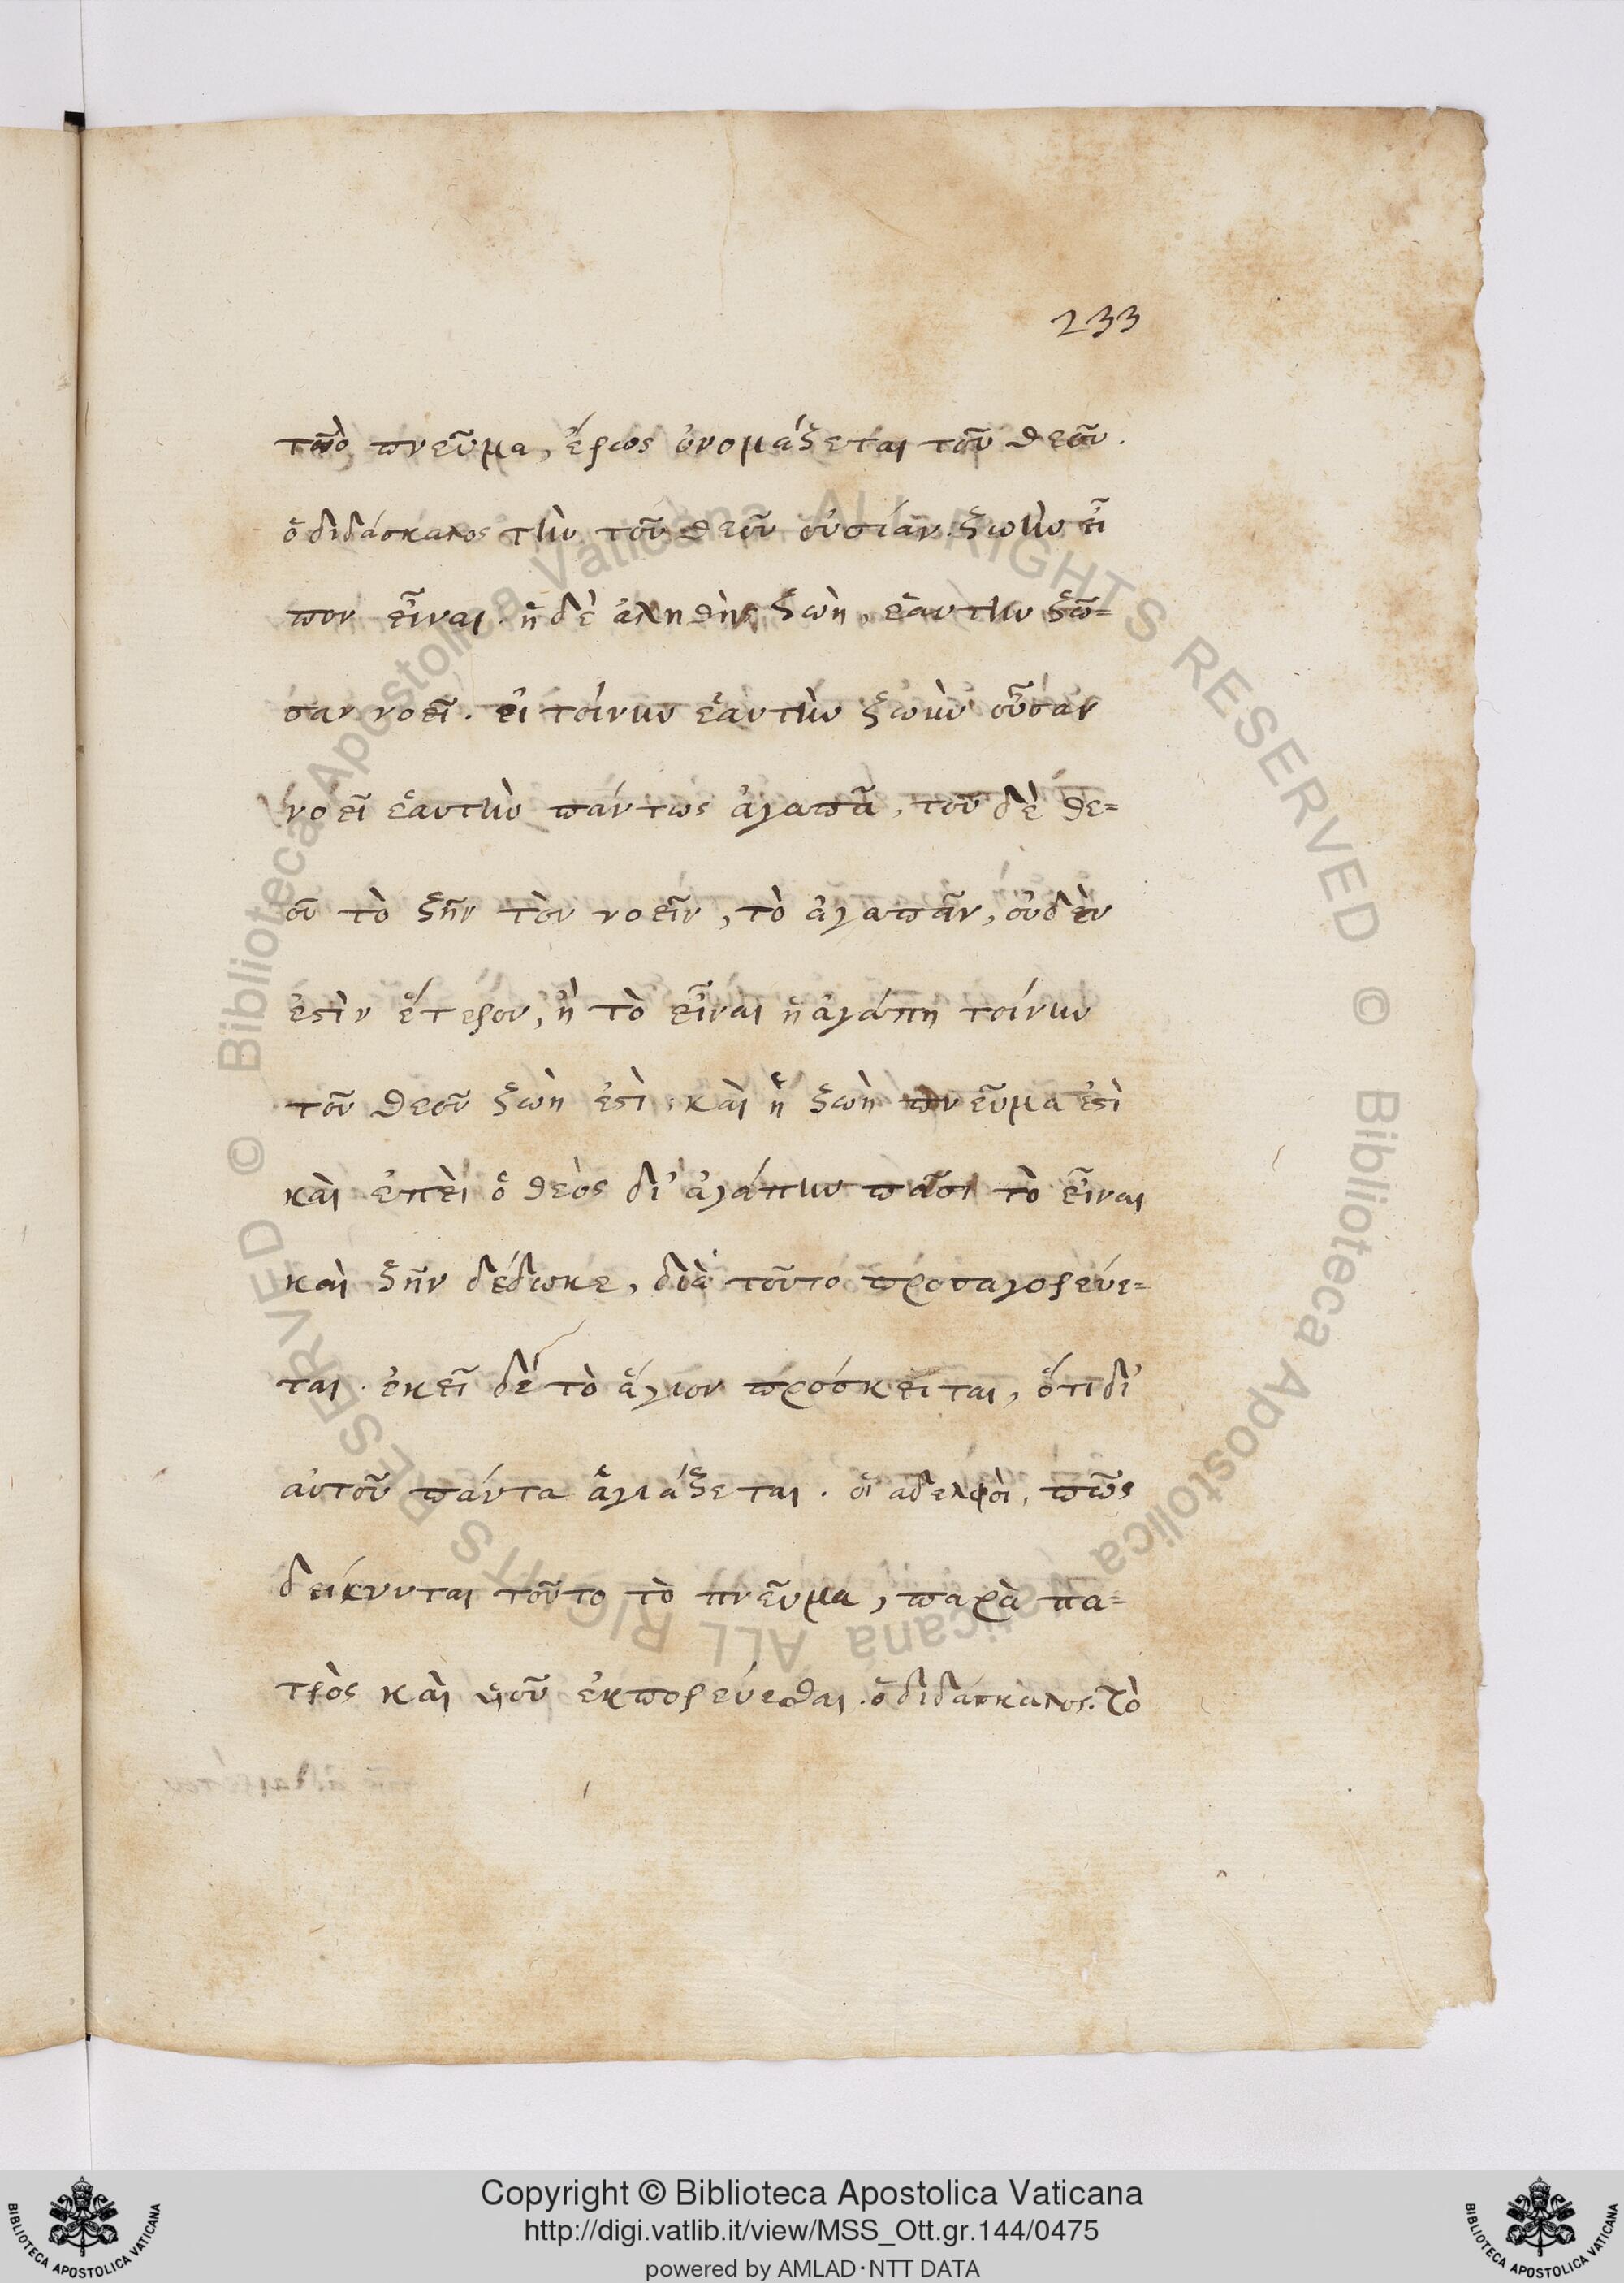 233
τοῦτο πνεῦμα, ἔρως ὀνομάζεται τοῦ θεοῦ.
ὁ διδάσκαλος τὴν τοῦ θεοῦ οὐσίαν ζωὴν εἶ
πον εἶναι. ἡ δὲ ἀληθὴς ζωὴ, ἑαυτὴν ζῶ=
σαν νοεῖ. εἰ τοίνυν ἑαυτὴν ζωὴν οὖσαν
νοεῖ ἑαυτὴν πάντως ἀγαπᾶ, τοῦ δὲ θε=
οῦ τὸ ζῆν τὸν νοεῖν, τὸ ἀγαπᾶν, οὐδὲν
ἐστὶν ἕτερον, ἢ τὸ εἶναι ἡ ἀγάπη τοίνυν
τοῦ θεοῦ ζωὴ ἐστὶ, καὶ ἡ ζωὴ πνεῦμα ἐστὶ
καὶ ἐπεὶ ὁ θεὸς δι' ἀγάπην πᾶσι τὸ εἶναι
καὶ ζῆν δέδωκε, διὰ τοῦτο προσαγορεύε=
ται. ἐκεῖ δὲ τὸ ἅγιον πρόσκειται, ὅτι δι'
αὐτοῦ πάντα ἁγιάζεται. οἱ αδελφοὶ, πῶς
δείκνυται τοῦτο τὸ πνεῦμα, παρὰ πα=
τρὸς καὶ υἱοῦ ἐκπορεύεσθαι. ὁ διδάσκαλος. Τὸ
Copyright © Biblioteca Apostolica Vaticana
http://digi.vatlib.it/view/MSS_Ott.gr.144/0475
powered by AMLAD·NTT DATA
BIBLIOTECA APOSTOLICA VATICANA
BIBLIOTECA APOSTOLICA VATICANA
© Biblioteca Apostolica Vaticana ALL RIGHTS RESERVED © Biblioteca Apostolica Vaticana ALL RIGHTS RESERVED